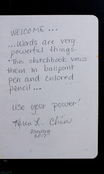 WELCOME...
...Words are very
powerful things.
This sketchbook uses
them in ballpoint
pen and colored
pencil...
Use your power!